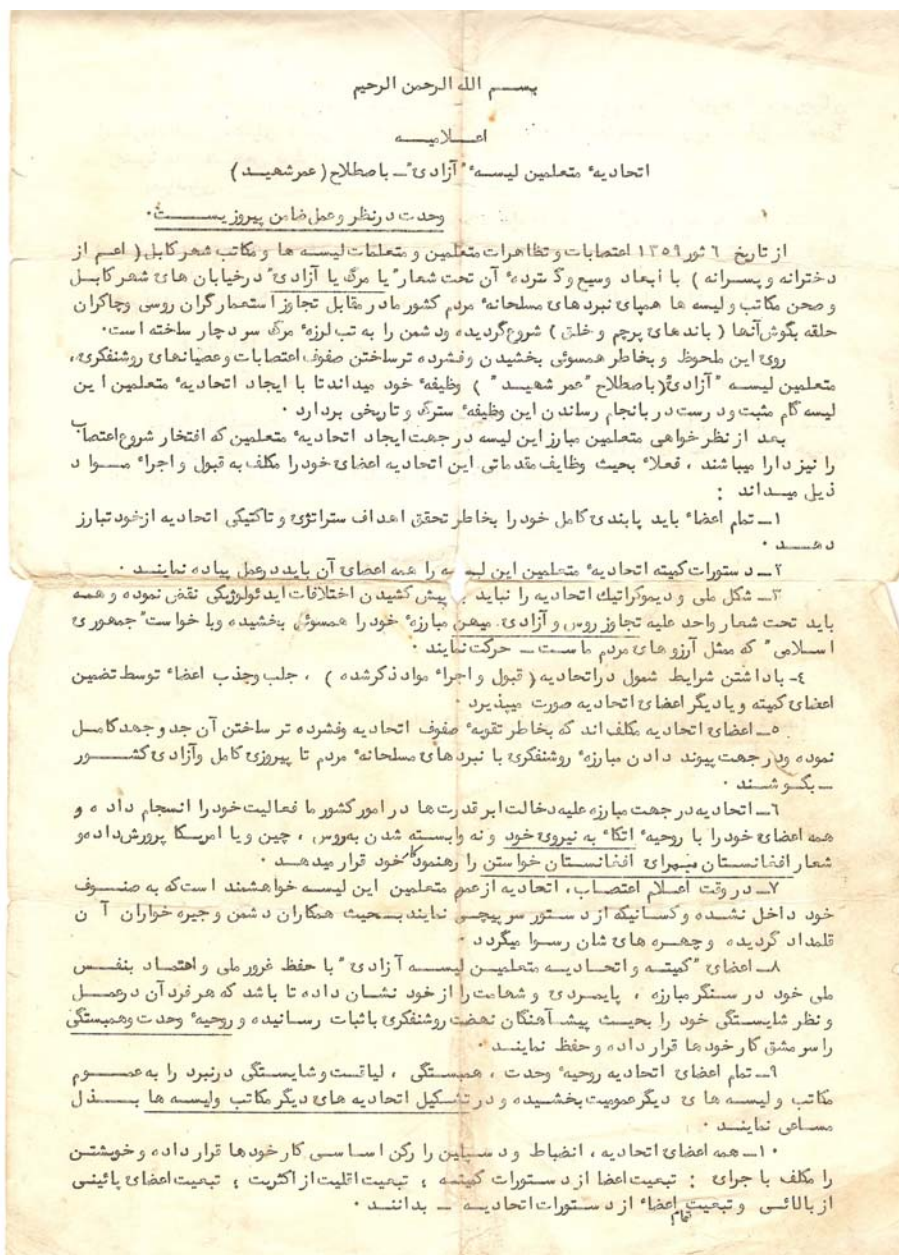 بسم الله الرحمن الرحیم
اعلامیه
اتحادیهٔ متعلمین لیسهٔ "آزادی" ـ باصطلاح (عمر شهید)
وحدت در نظر و عمل ضامن پیروزیست.
از تاریخ ٦ ثور ١٣٥٩ اعتصابات و تظاهرات متعلمین و متعلمات لیسه ها و مکاتب شهر کابل (اعم از
دخترانه و پسرانه) با ابعاد وسیع و گستردهٔ آن تحت شعار "یا مرگ یا آزادی" درخیابان های شهر کابل
و صحن مکاتب و لیسه ها همپای نبردهای مسلحانهٔ مردم کشور ما در مقابل تجاوز استعمارگران روسی وچاکران
حلقه بگوش آنها (باندهای پرچم و خلق) شروع گردیده ودشمن را به تب لرزهٔ مرگ سر دچار ساخته است.
روی این ملحوظ و بخاطر همسوئی بخشیدن وفشرده ترساختن صفوف اعتصابات وعصیانهای روشنفکری،
متعلمین لیسه "آزادی" (باصطلاح "عمر شهید") وظیفهٔ خود میداند تا با ایجاد اتحادیهٔ متعلمین این
لیسه گام مثبت ودرست در بانجام رساندن این وظیفهٔ سترگ و تاریخی بردارد.
بعد از نظر خواهی متعلمین مبارز این لیسه در جهت ایجاد اتحادیهٔ متعلمین که افتخار شروع اعتصاب
را نیز دارا میباشند، فعلاً بحیث وظایف مقدماتی این اتحادیه اعضای خودرا مکلف به قبول و اجراء مواد
ذیل میداند :
١ـ تمام اعضاء باید پابندی کامل خودرا بخاطر تحقق اهداف ستراتژی و تاکتیکی اتحادیه ازخود تبارز
دهد.
٢ـ دستورات کمیته اتحادیهٔ متعلمین این لیسه را همه اعضای آن باید درعمل پیاده نمایند.
٣ـ شکل ملی و دیموکراتیك اتحادیه را نباید با پیش کشیدن اختلافات ایدئولوژیکی نقض نموده و همه
باید تحت شعار واحد علیه تجاوز روس و آزادی میهن مبارزهٔ خودرا همسوئی بخشیده وبا خواست "جمهوری
اسلامی" که ممثل آرزو های مردم ماست ـ حرکت نمایند.
٤- باداشتن شرایط شمول دراتحادیه (قبول و اجراء مواد ذکرشده)، جلب وجذب اعضاء توسط تضمین
اعضای کمیته و یادیگر اعضای اتحادیه صورت میپذیرد.
٥ـ اعضای اتحادیه مکلف اند که بخاطر تقویهٔ صفوف اتحادیه وفشرده تر ساختن آن جد و جهد کامل
نموده ودر جهت پیوند دادن مبارزهٔ روشنفکری با نبردهای مسلحانهٔ مردم تا پیروزی کامل وآزادی کشور
ـ بکوشند.
٦ـ اتحادیه در جهت مبارزه علیه دخالت ابر قدرت ها در امور کشور ما فعالیت خودرا انسجام داده و
همه اعضای خودرا با روحیهٔ اتکاء به نیروی خود و نه وابسته شدن به روس، چین و یا امریکا پرورش داده و
شعار افغانستان برای افغانستان خواستن را رهنمود کار خود قرار میدهد.
٧ـ در وقت اعلام اعتصاب، اتحادیه ازعموم متعلمین این لیسه خواهشمند است که به صنوف
خود داخل نشده وکسانیکه از دستور سرپیچی نمایند بحیث همکاران دشمن و جیره خواران آن
قلمداد گردیده و چهره های شان رسوا میگردد.
٨ـ اعضای "کمیته و اتحادیه متعلمین لیسه آزادی" با حفظ غرور ملی و اعتماد بنفس
ملی خود در سنگر مبارزه، پایمردی و شهامت را از خود نشان داده تا باشد که هر فرد آن درعمل
و نظر شایستگی خود را بحیث پیش آهنگان نهضت روشنفکری باثبات رسانیده و روحیهٔ وحدت وهمبستگی
را سرمشق کار خودها قرار داده و حفظ نمایند.
٩ـ تمام اعضای اتحادیه روحیهٔ وحدت، همبستگی، لیاقت و شایستگی درنبرد را به عموم
مکاتب و لیسه های دیگر عمومیت بخشیده و در تشکیل اتحادیه های دیگر مکاتب ولیسه ها بذل
مساعی نمایند.
١٠ـ همه اعضای اتحادیه، انضباط و دسپلین را رکن اساسی کار خودها قرار داده و خویشتن
را مکلف با جرای : تبعیت اعضا از دستورات کمیته ؛ تبعیت اقلیت از اکثریت ؛ تبعیت اعضای پائینی
از بالائی و تبعیت تمام اعضاء از دستورات اتحادیه ـ بدانند.